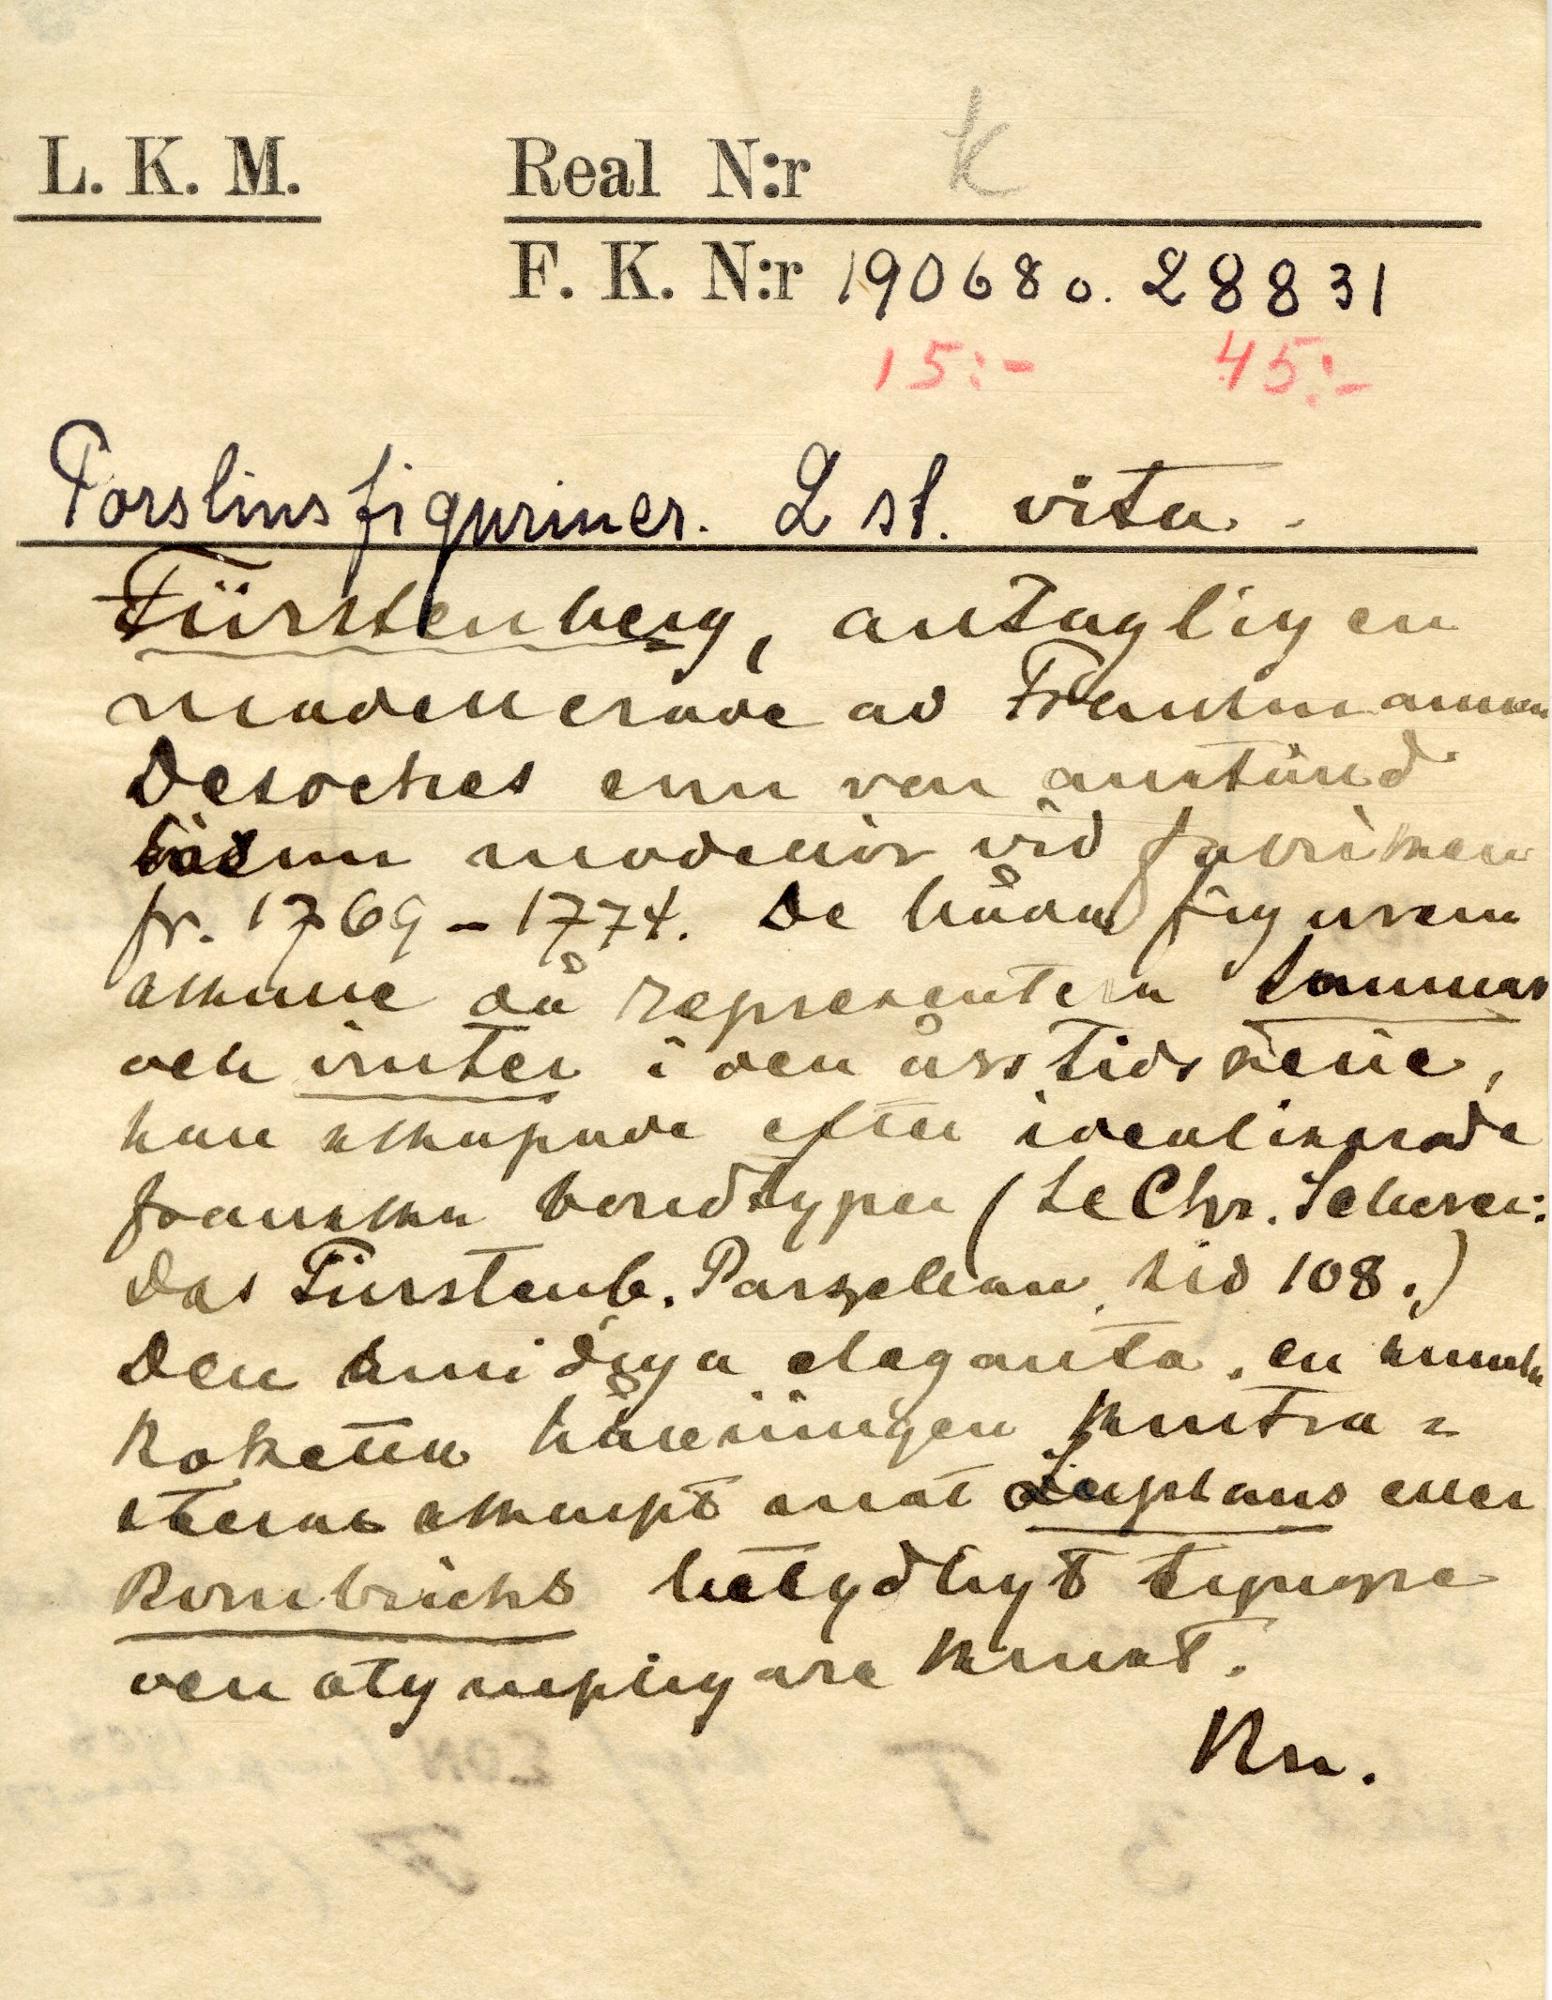 L. K. M. Real N:r K
F. K. N:r 19068 o. 28831
15:- 45:-
Porslinsfiguriner. 2 st. vita.
Fürstenberg, antagligen
modellerade av Fransmannen
Desoches som var anställd
såsom modellör vid fabriken
fr. 1769-1774. De båda figurerna
skulle då representera sommar
och vinter i den årstidsserie,
han skapade efter idealiserade
franska bondtyper (Se Chr. Scherer:
Das Fürstenb. Porzellan sid 108.)
Den smidiga eleganta, en smula
koketta hållningen kontra=
sterar skarpt mot Luplaus eller
Rombrichs betydligt
konst.
Kn.